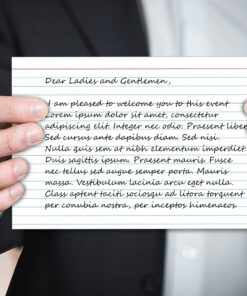 Dear Ladies and Gentlemen,
I am pleased to welcome you to this event
Lorem ipsum dolor sit amet, consectetur
adipiscing elit. Integer nec odio. Praesent liber
Sed cursus ante dapibus diam. Sed nisi.
Nulla quis sem at nibh elementum imperdiet.
Duis sagittis ipsum. Praesent mauris. Fusce
nec tellus sed augue semper porta. Mauris
massa. Vestibulum lacinia arcu eget nulla.
Class aptent taciti sociosqu ad litora torquent
per conubia nostra, per inceptos himenaeos.